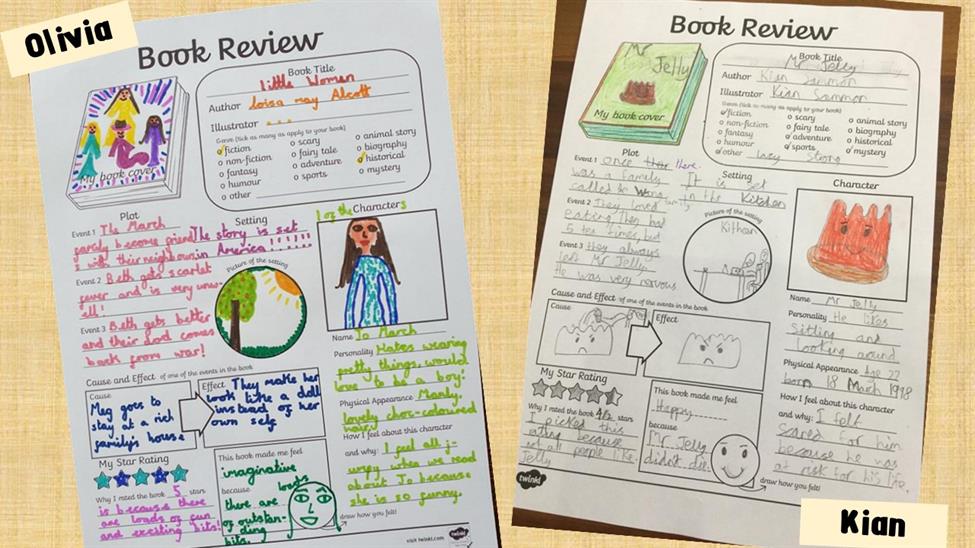 Olivia
Book Review
Book Title
Little Women
Author Loisa may Alcott
Illustrator
Genre (tick as many as apply to your book)
fiction
non-fiction
fantasy
humour
other
scary
fairy tale
adventure
sports
animal story
biography
historical
mystery
My book cover
Plot
Event 1 The March
family become friend
s with their neighbours
Event 2 Beth gets scarlet
fever and is very unw-
ell!
Event 3 Beth gets better
and their dad comes
back from war!
Setting
The story is set
in America!!!!!!
Picture of the setting
1 of the Characters
Name Jo March
Personality Hates wearing
pretty things, would
love to be a boy!
Physical Appearance Manly,
lovely choc-coloured
How I feel about this character
and why: I feel all j-
when we read
about Jo because
she is so funny.
Cause and Effect of one of the events in the book
Cause
Meg goes to
stay at a rich
family's house
Effect They make her
look like a doll
instead of her
own self
My Star Rating
Why I rated the book 5 stars
is because there
are loads of fun
and exciting bits!
This book made me feel
imaginative
because loads
there are
of outstan-
ding
bits.
draw how you felt!
visit twinkl.com
twinkl
Book Review
Book Title
Mr Jelly
Author Kian Sammon
Illustrator Kian Sammon
Genre (tick as many as apply to your book)
fiction
non-fiction
fantasy
humour
other lazy strong
scary
fairy tale
adventure
sports
animal story
biography
historical
mystery
Mr Jelly
My book cover
Plot
Event 1 Once there
was a family
called
Event 2 They loved
eating they had
5 tea times, but
Event 3 they always
left Mr Jelly
He was very nervous
Setting
It is set
in the Kitchen
Picture of the setting
Kithcen
Character
Name Mr Jelly
Personality He likes
Sitting and
looking around
Physical Appearance Age 22
born 18 March 1998
How I feel about this character
and why: I felt
scared for him
because he was
at risk for his life.
Cause and Effect of one of the events in the book
Cause
Effect
My Star Rating
Why I rated the book stars
I picked this
rating because
not all people like
Jelly
This book made me feel
Happy
because
Mr Jelly
didn't die.
draw how you felt!
twinkl
Kian